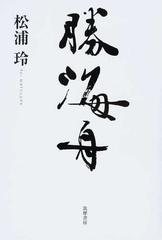 勝海舟
松浦 玲
筑摩書房